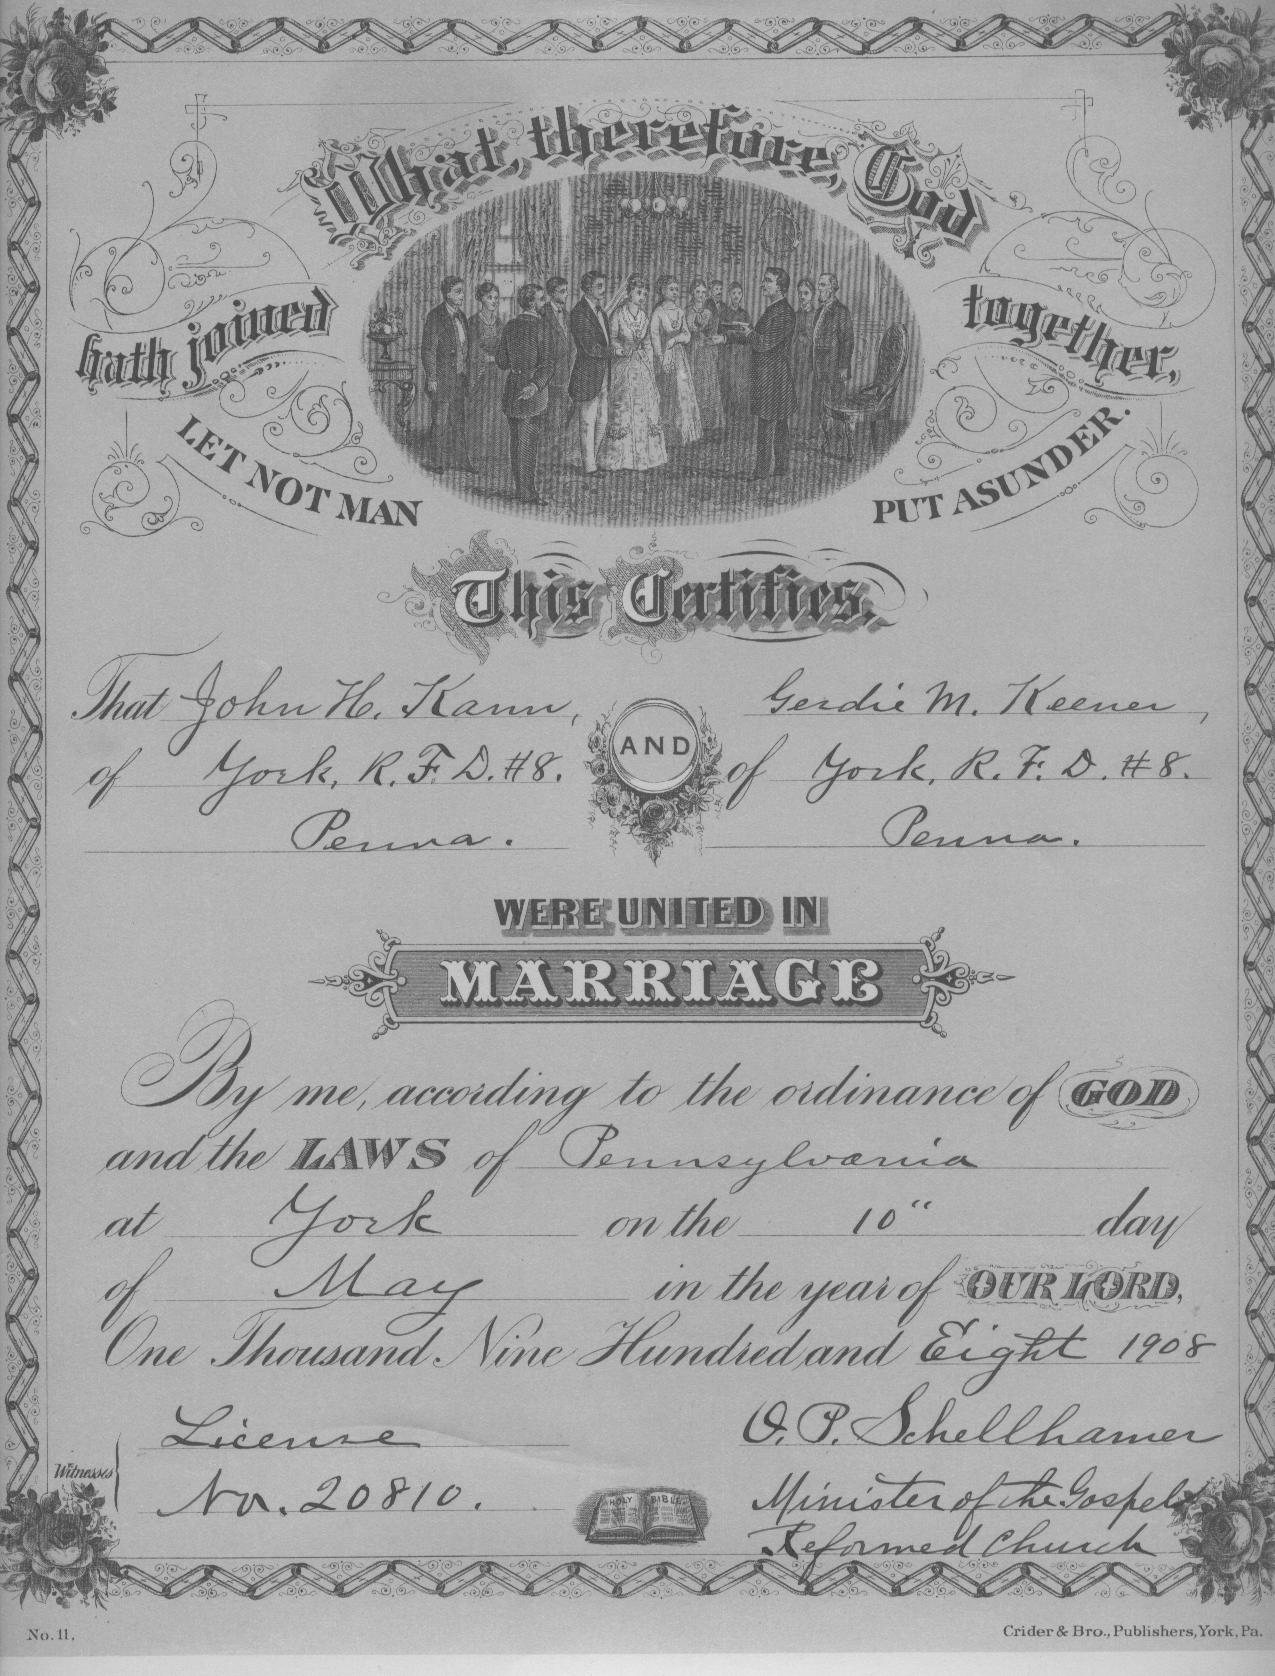 What, therefore, God
hath joined together,
LET NOT MAN PUT ASUNDER.
This Certifies,
That John H. Kann, AND Gerdie M. Keener,
of York, R. F. D. #8. of York, R. F. D. #8.
Penna. Penna.
WERE UNITED IN
MARRIAGE
By me, according to the ordinance of GOD
and the LAWS of Pennsylvania
at York on the 10" day
of May in the year of OUR LORD,
One Thousand Nine Hundred and Eight 1908
License O. P. Schellhamer
Witnesses
No. 20810. HOLY BIBLE Minister of the Gospel
Reformed Church
No. 11. Crider & Bro., Publishers, York, Pa.